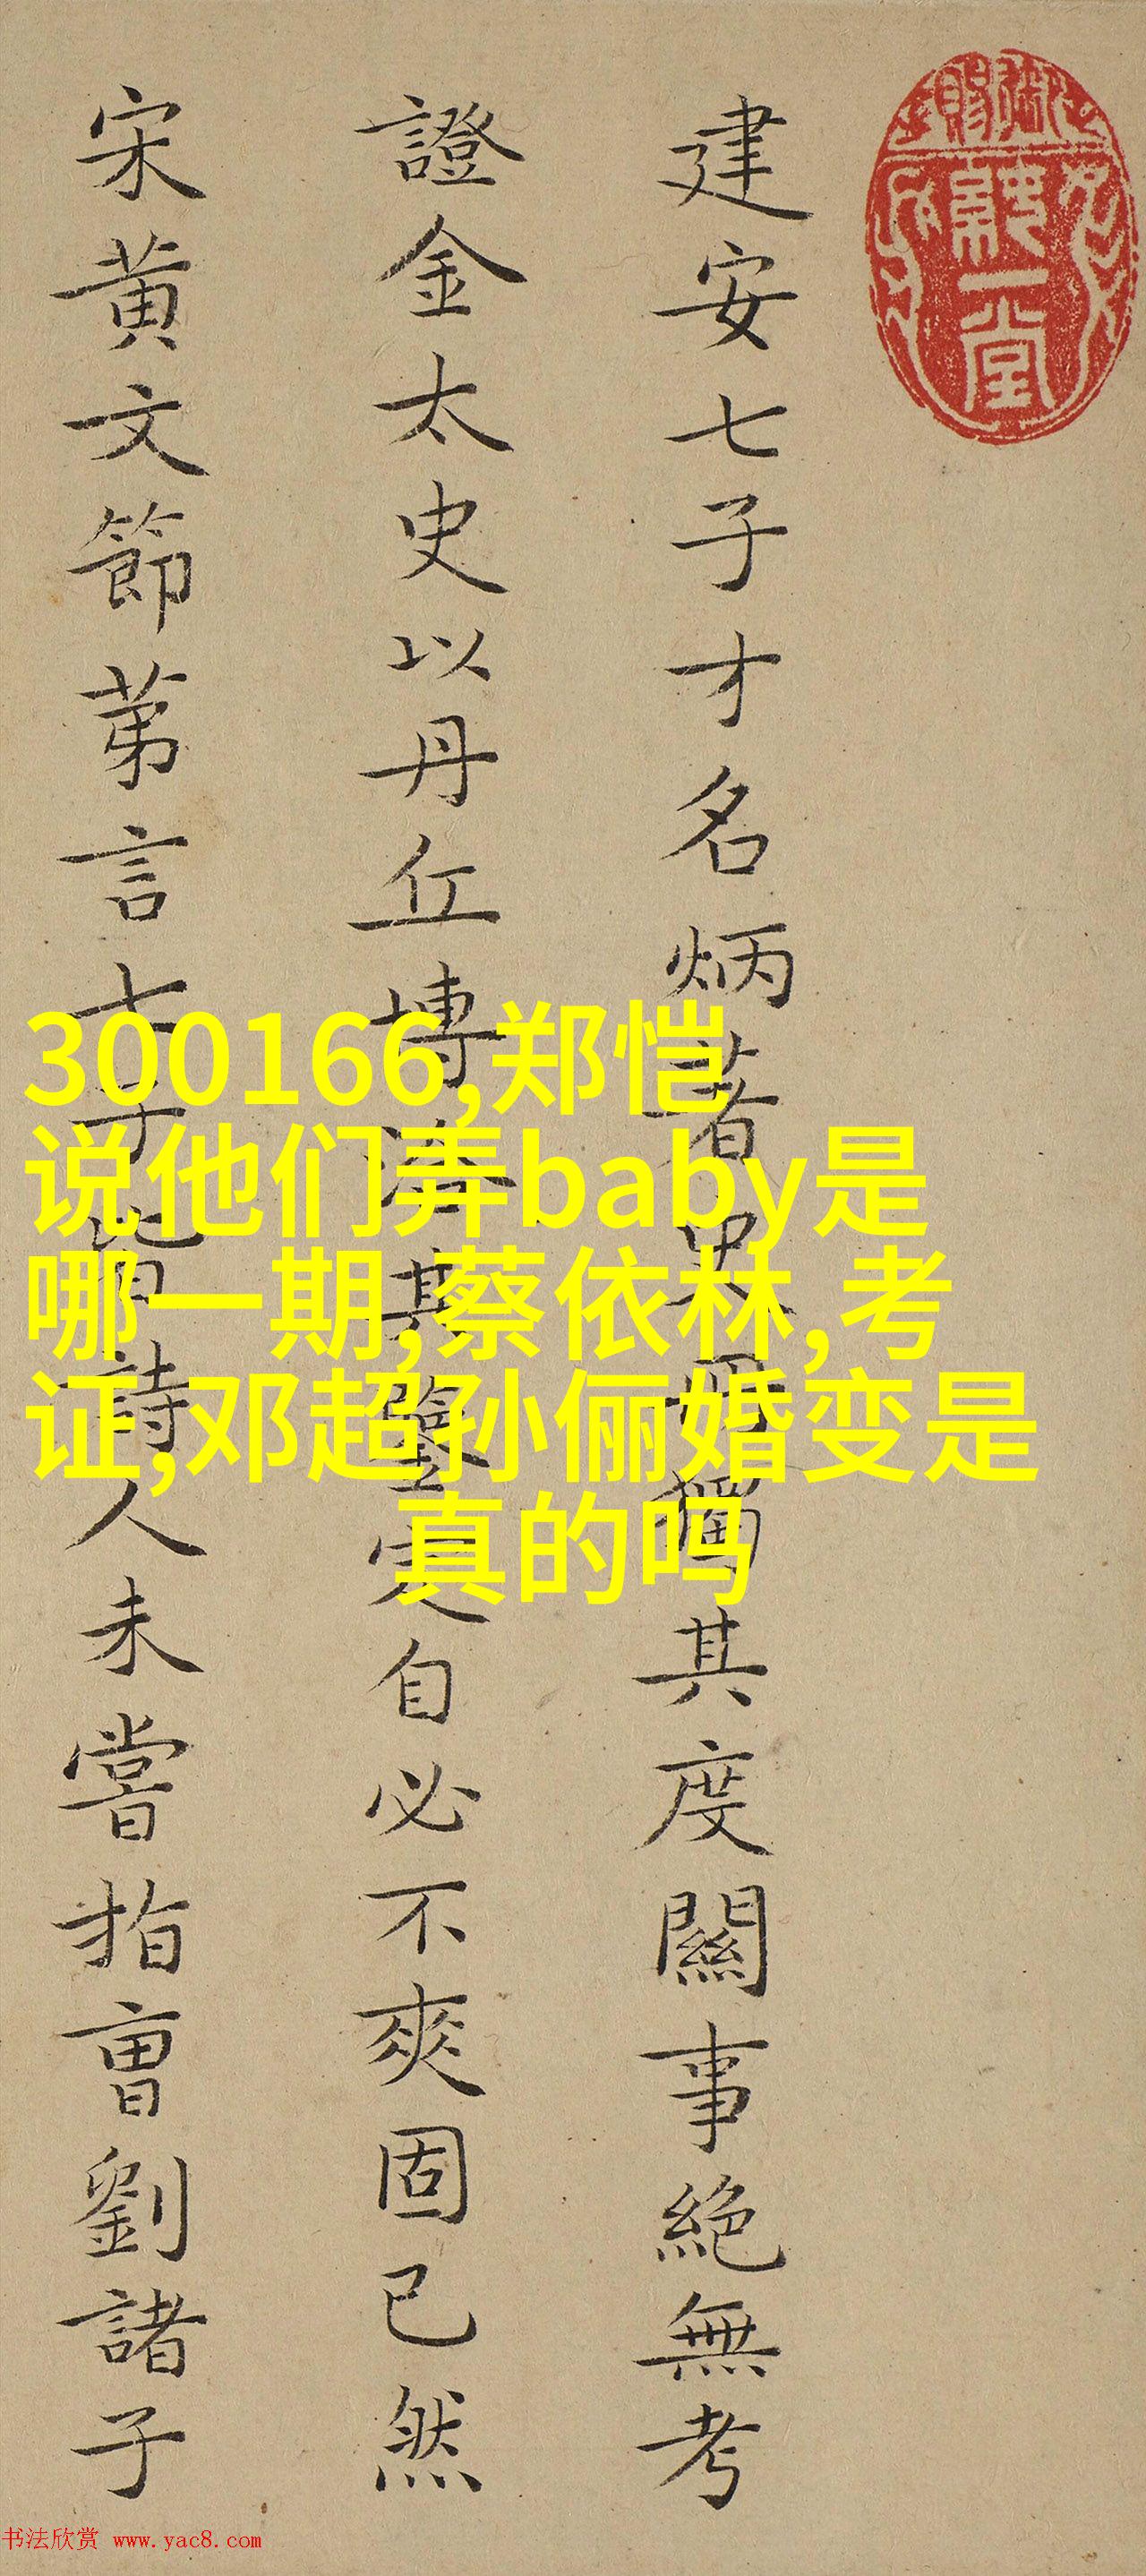 建安七子才名炳著史冊獨其度關事絕無考
證金太史以丹丘博洽其鑒定自必不爽固已然
宋黃文節苐言七子皆詩人未嘗指曹劉諸子
300166,郑恺
说他们弄baby是
哪一期,蔡依林,考
证,邓超孙俪婚变是
真的吗
书法欣赏 www.yac8.com